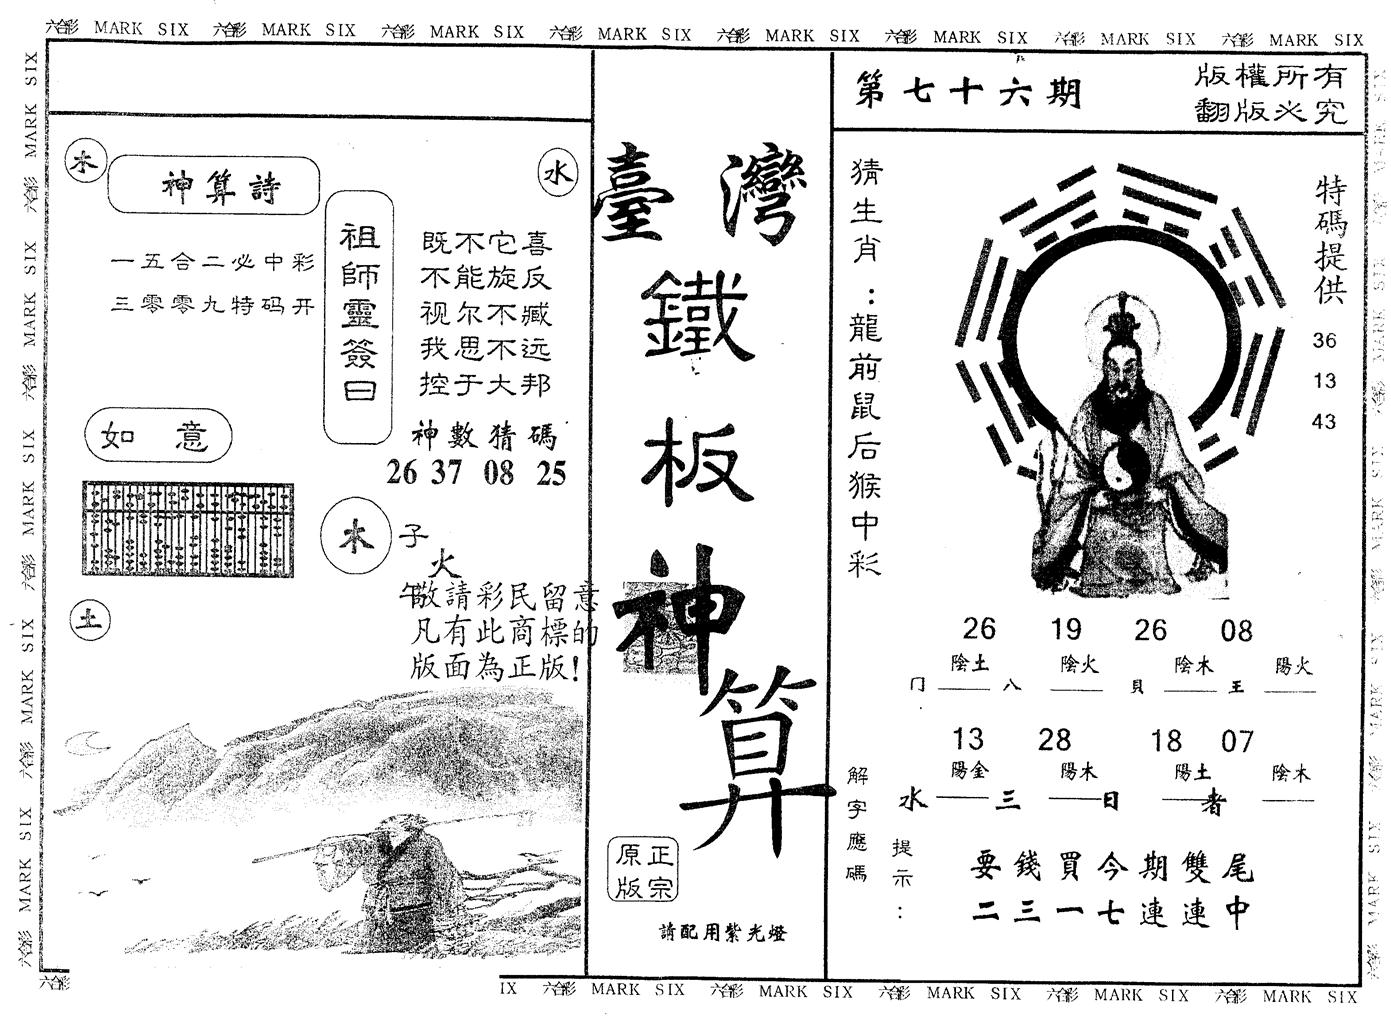 六合彩 MARK SIX 六合彩 MARK SIX 六合彩 MARK SIX 六合彩 MARK SIX 六合彩 MARK SIX 六合彩 MARK SIX 六合彩 MARK SIX 六合彩 MARK SIX
木
神算詩
水
一五合二必中彩
三零零九特码开
祖師靈簽曰
既不它喜
不能旋反
视尔不臧
我思不远
控于大邦
神數猜碼
26 37 08 25
如意
木
子
火
午
土
敬請彩民留意
凡有此商標的
版面為正版!
臺灣
鐵
板
神
算
正宗
原版
請配用紫光燈
第七十六期
版權所有
翻版必究
猜生肖:龍前鼠后猴中彩
特碼提供
36
13
43
26 19 26 08
陰土 陰火 陰木 陽火
冂 八 貝 王
13 28 18 07
陽金 陽木 陽土 陰木
水 三 日 者
解字應碼
提示:
要錢買今期雙尾
二三一七連連中
IX 六合彩 MARK SIX 六合彩 MARK SIX 六合彩 MARK SIX 六合彩 MARK SIX 六合彩 MARK SIX